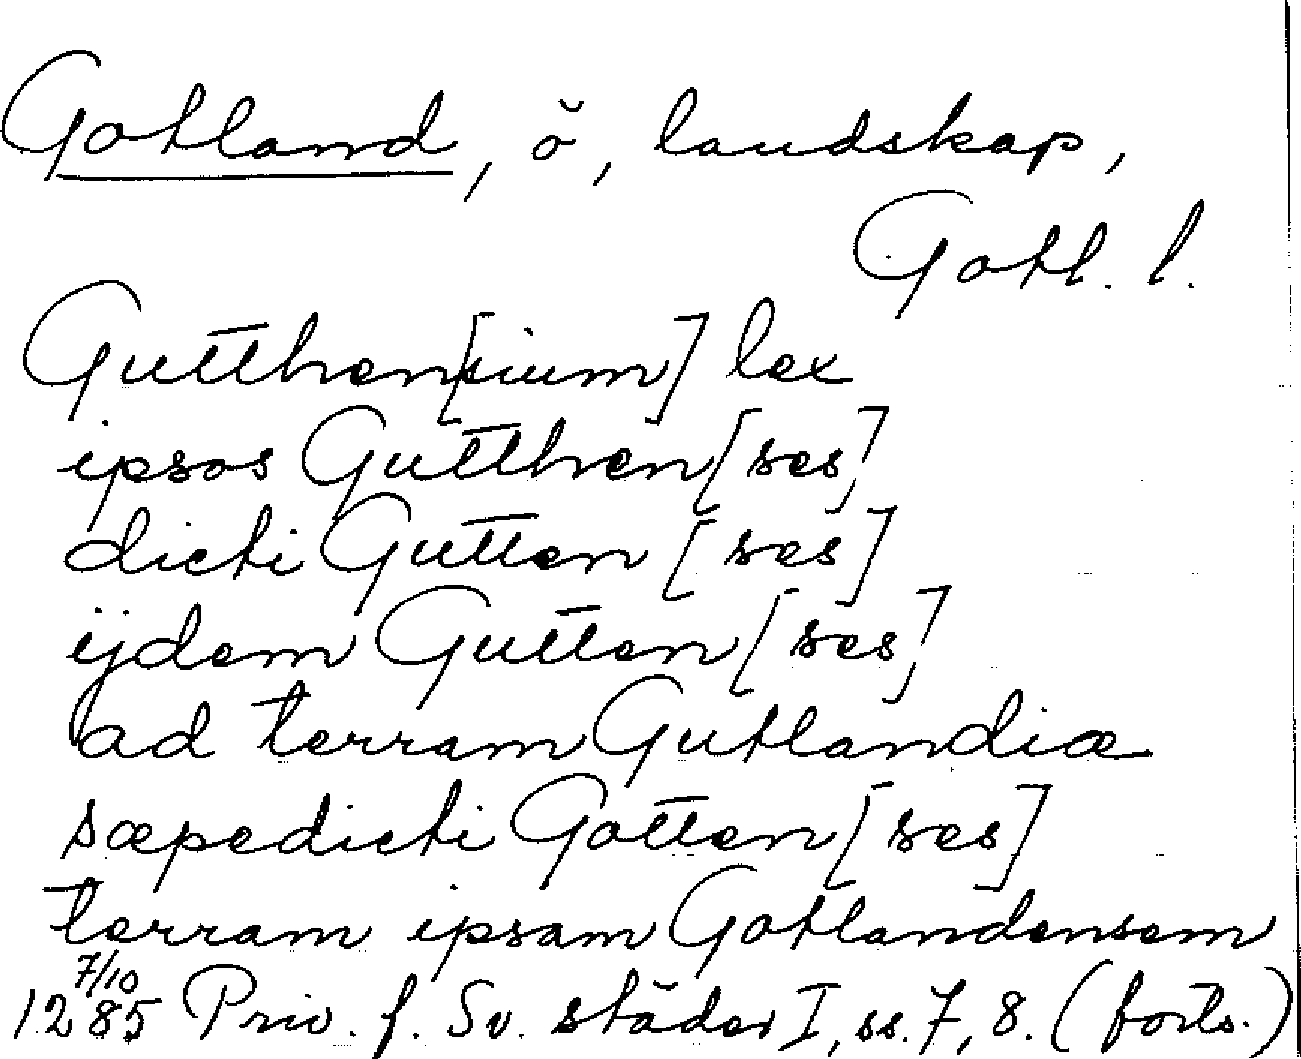 Gotland, ö, landskap,
Gotl. l.
Gutthen[sium] lex
ipsos Gutthen[ses]
dicti Gutten[ses]
ijdem Gutten[ses]
ad terram Gutlandiæ
sæpedicti Gotten[ses]
terram ipsam Gotlandensem
7/10
1285 Priv. f. Sv. städer I, ss. 7, 8. (forts.)